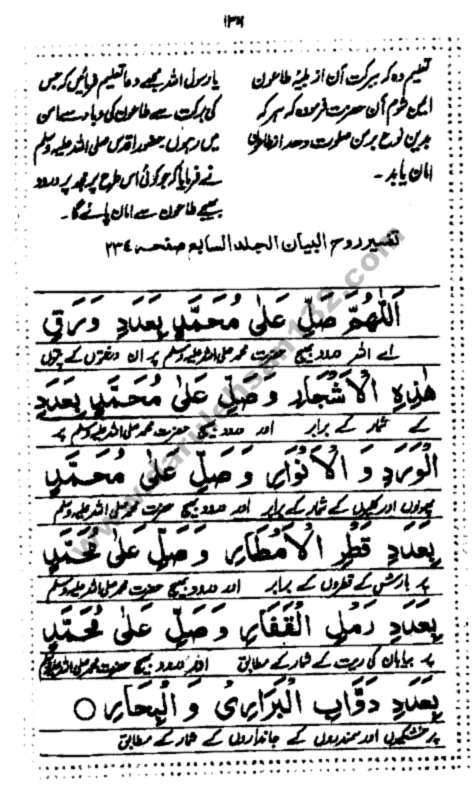 ۱۳۶
یا رسول اللہ مجھے دعا تعلیم فرمائیں کہ جس
کی برکت سے طاعون کی وباء سے امن
میں رہوں۔ حضور اقدس صلی اللہ علیہ وسلم
نے فرمایا کہ جو کوئی اس طرح پر مجھ پر درود
بھیجے طاعون سے امان پائے گا۔
تعلیم دہ کہ ببرکت آن از بلیہ طاعون
این شوم آن حضرت فرمودہ کہ ہر کہ
بدین نوع بر من صلوت دهد از طاعون
امان یابد۔
تفسیر روح البیان الجلد السابع صفحہ ۲۳۴
اَللّٰهُمَّ صَلِّ عَلٰى مُحَمَّدٍ بِعَدَدِ وَرَقِ
اے اللہ درود بھیج حضرت محمد صلی اللہ علیہ وسلم پر ان درختوں کے پتوں
هٰذِهِ الْاَشْجَارِ وَصَلِّ عَلٰى مُحَمَّدٍ بِعَدَدِ
کے شمار کے برابر اور درود بھیج حضرت محمد صلی اللہ علیہ وسلم پر
الْوَرَدِ وَ الْاَنْوَارِ وَصَلِّ عَلٰى مُحَمَّدٍ
پھولوں اور کلیوں کے شمار کے برابر اور درود بھیج حضرت محمد صلی اللہ علیہ وسلم
بِعَدَدِ قَطْرِ الْاَمْطَارِ وَصَلِّ عَلٰى مُحَمَّدٍ
پر بارش کے قطروں کے برابر اور درود بھیج حضرت محمد صلی اللہ علیہ وسلم
بِعَدَدِ رَمْلِ الْقَفَارِ وَصَلِّ عَلٰى مُحَمَّدٍ
پر بیابان کی ریت کے شمار کے مطابق اور درود بھیج حضرت محمد صلی اللہ علیہ وسلم
بِعَدَدِ دَوَّابِ الْبَرَارِىْ وَ الْبِحَارِ ○
پر خشکیوں اور سمندروں کے جانداروں کے شمار کے مطابق